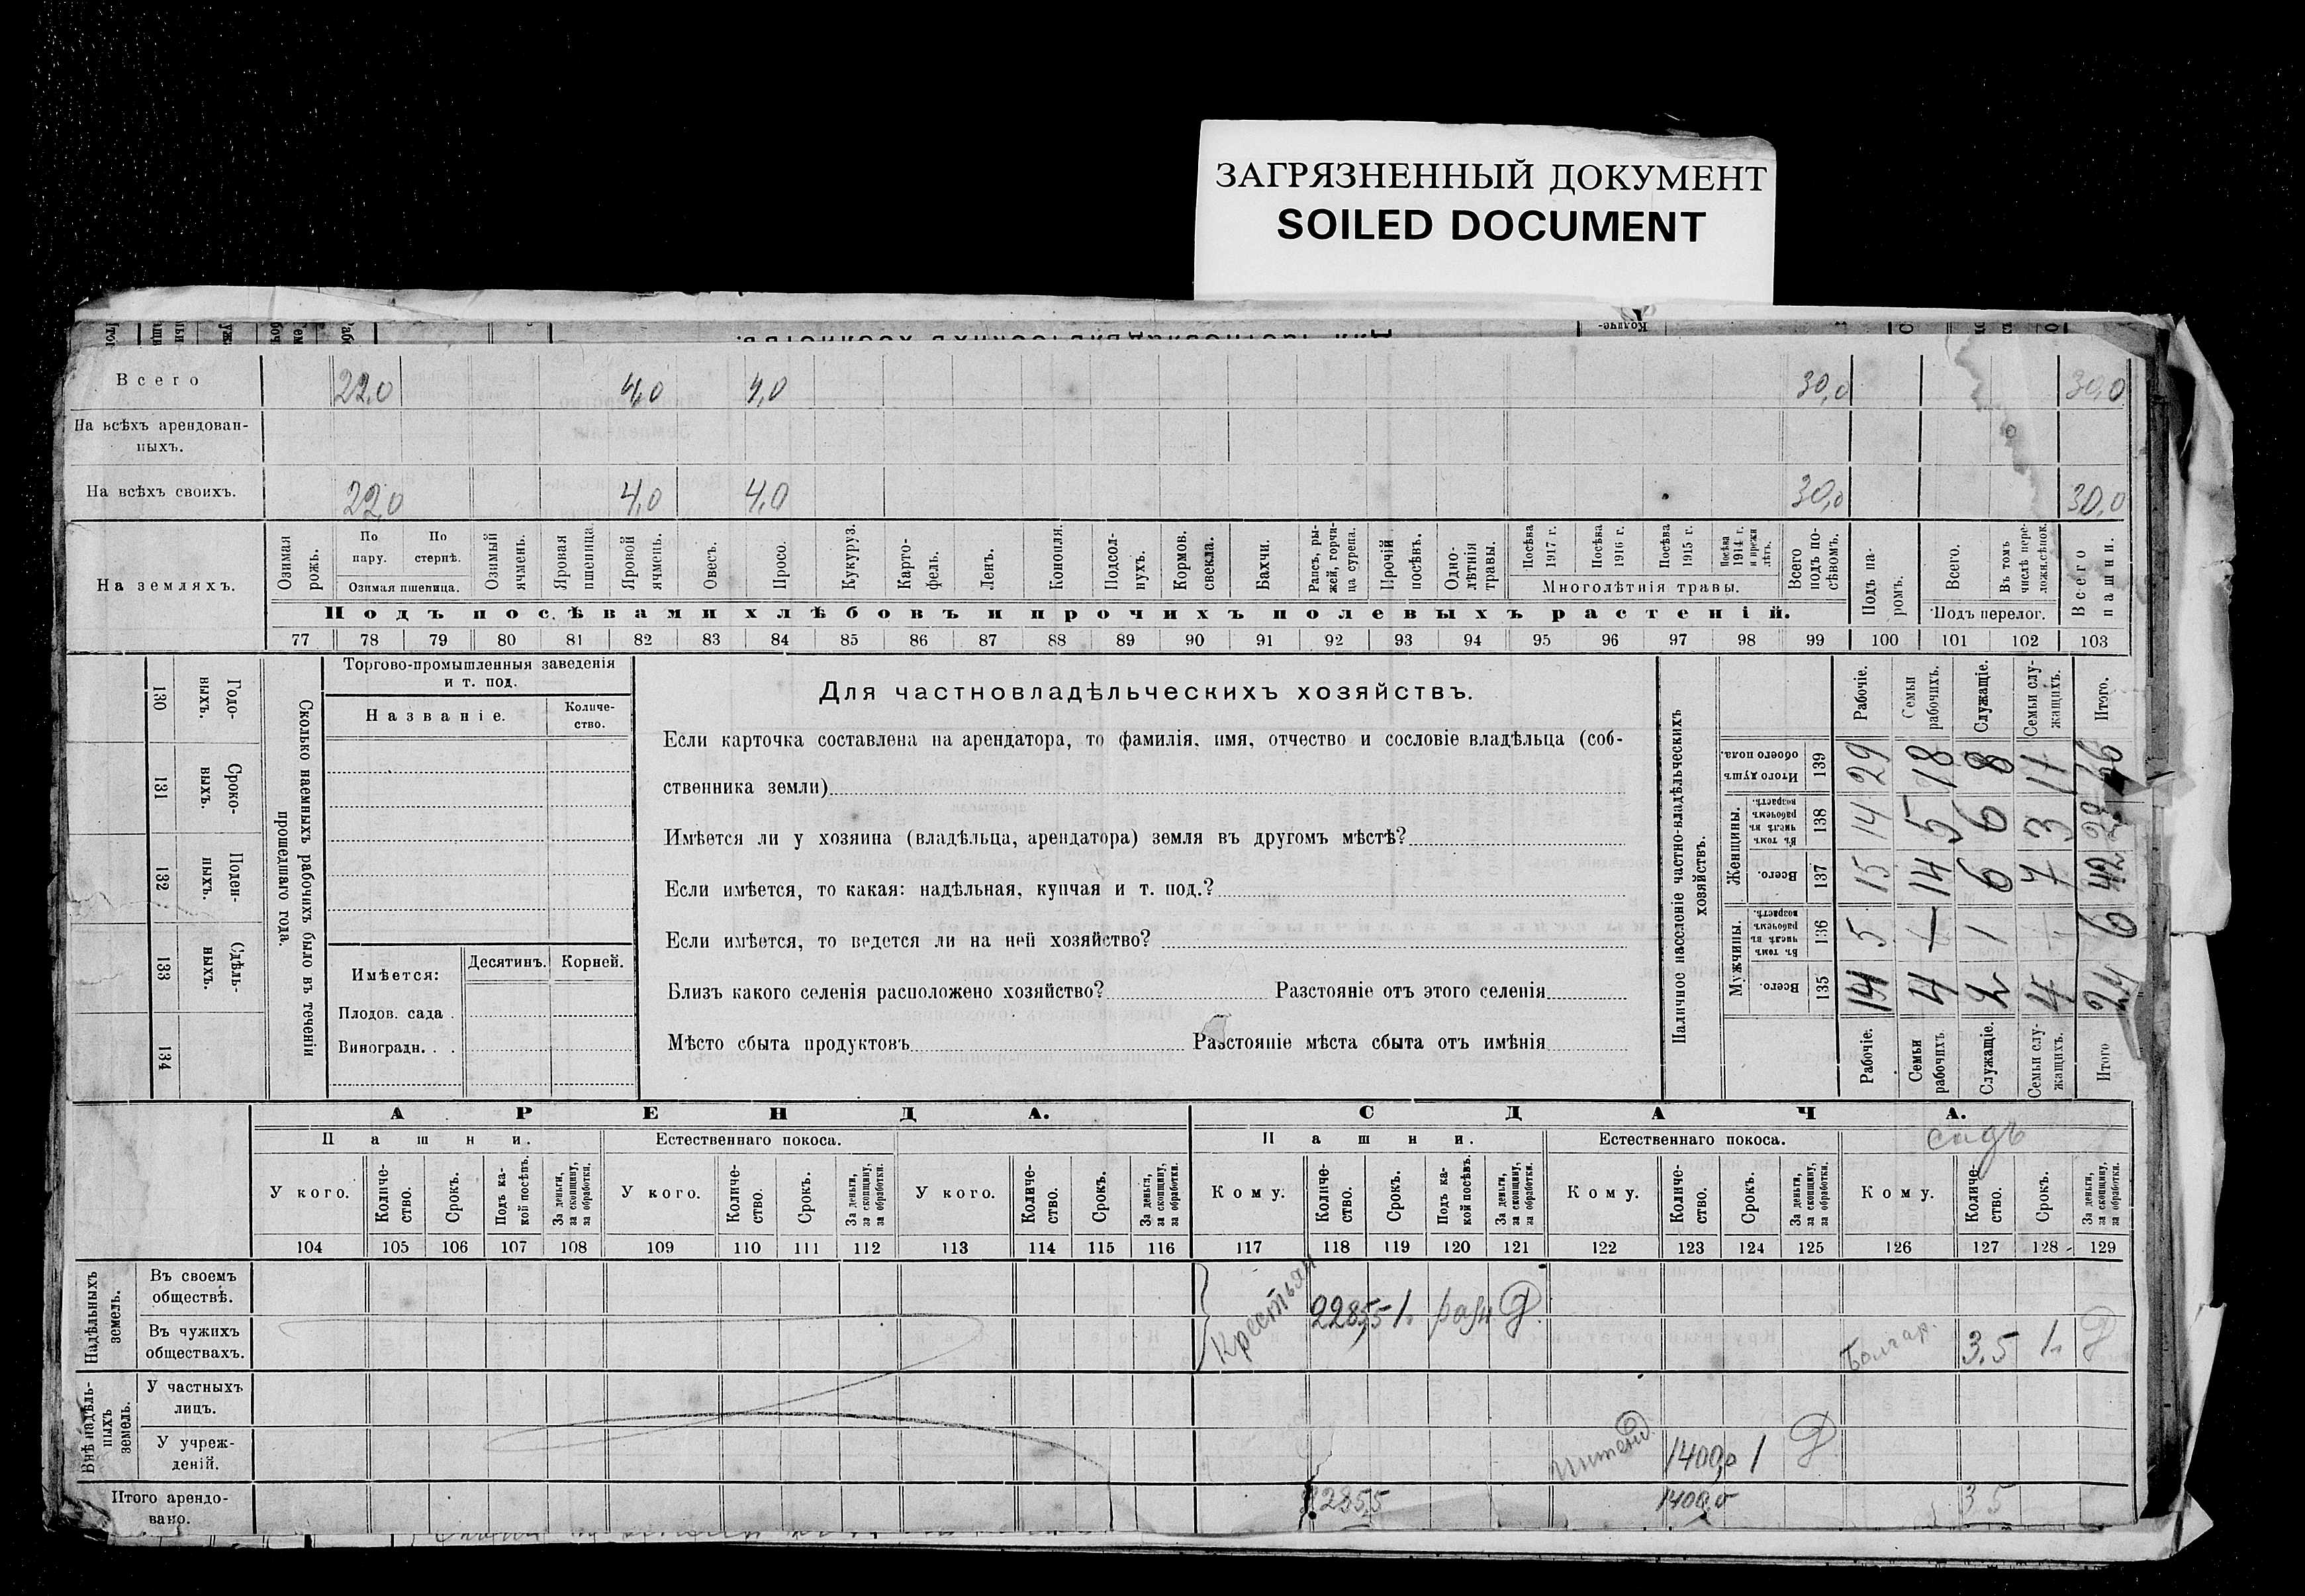 ЗАГРЯЗНЕННЫЙ ДОКУМЕНТ
SOILED DOCUMENT
Всего 22,0 4,0 4,0 30,0 30,0
На всѣхъ арендован-
ныхъ.
На всѣхъ своихъ. 22,0 4,0 4,0 30,0 30,0
На земляхъ.
Озимая рожь.
По пару.
По стернѣ.
Озимая пшеница.
Озимый ячмень.
Яровая пшеница.
Яровой ячмень.
Овесъ.
Просо.
Кукуруз.
Карто-фель.
Ленъ.
Конопля.
Подсол-нухъ.
Кормов. свекла.
Бахчи.
Рапсъ, ры-жей, горчи-ца сурепа.
Прочій посѣвъ.
Одно-лѣтнія травы.
Посѣва 1917 г.
Посѣва 1916 г.
Посѣва 1915 г.
Посѣва 1914 г. и прежн лѣтъ.
Многолѣтнія травы.
Всего подъ по-сѣвомъ.
Подъ па-ромъ.
Всего.
Въ томъ числѣ пере-
Подъ перелог.
Всего пашни.
Подъ посѣвами хлѣбовъ и прочихъ полевыхъ растеній.
77 78 79 80 81 82 83 84 85 86 87 88 89 90 91 92 93 94 95 96 97 98 99 100 101 102 103
130 Годо-выхъ.
131 Сроко-выхъ.
132 Поден-ныхъ.
133 Сдѣль-ныхъ.
134
Сколько наемныхъ рабочихъ было въ теченіи прошедшаго года.
Торгово-промышленныя заведенія
и т. под.
Названіе.
Количе-ство.
Имѣется: Десятинъ. Корней.
Плодов. сада .
Виноградн. . .
Для частновладѣльческихъ хозяйствъ.
Если карточка составлена на арендатора, то фамилія, имя, отчество и сословіе владѣльца (соб-
ственника земли)
Имѣется ли у хозяина (владѣльца, арендатора) земля въ другомъ мѣстѣ?
Если имѣется, то какая: надѣльная, купчая и т. под.?
Если имѣется, то ведется ли на ней хозяйство?
Близъ какого селенія расположено хозяйство? Разстояніе отъ этого селенія
Мѣсто сбыта продуктовъ Разстояніе мѣста сбыта отъ имѣнія
Наличное населеніе частно-владѣльческихъ хозяйствъ.
Рабочіе.
Семьи рабочихъ.
Служащіе.
Семьи слу-жащихъ.
Итого.
Итого душъ обоего пола. 139 29 18 8 11
Женщины.
Въ томъ числѣ въ рабочемъ возрастѣ. 138 14 5 6 3
Всего. 137 15 14 6 7 42
Мужчины.
Въ томъ числѣ въ рабочемъ возрастѣ. 136 5 1 6
Всего. 135 14 4 2 4 24
Рабочіе.
Семьи рабочихъ
Служащіе.
Семьи слу-жащихъ.
Итого
АРЕНДА. СДАЧА.
Пашни. Естественнаго покоса. Пашни. Естественнаго покоса. садъ
У кого. Количе-ство. Срокъ. Подъ ка-кой посѣвъ. За деньги, за скопщину, за обработки.
У кого. Количе-ство. Срокъ. За деньги, за скопщину, за обработки.
У кого. Количе-ство. Срокъ. За деньги, за скопщину, за обработки.
Кому. Количе-ство. Срокъ. Подъ ка-кой посѣвъ. За деньги, за скопщину, за обработки.
Кому. Количе-ство. Срокъ. За деньги, за скопщину, за обработки.
Кому. Количе-ство. Срокъ. За деньги, за скопщину, за обработки.
104 105 106 107 108 109 110 111 112 113 114 115 116 117 118 119 120 121 122 123 124 125 126 127 128 129
Надѣльныхъ земель.
Въ своемъ
обществѣ.
Крестьян 2285,5 1 Д
Въ чужихъ
обществахъ.
Болгар. 3,5 1 Д
Внѣ надѣль-ныхъ земель.
У частныхъ
лицъ.
У учреж-
деній.
1400,0 1 Д
Итого арендо-
вано.
2285,5 1400,0 3 5